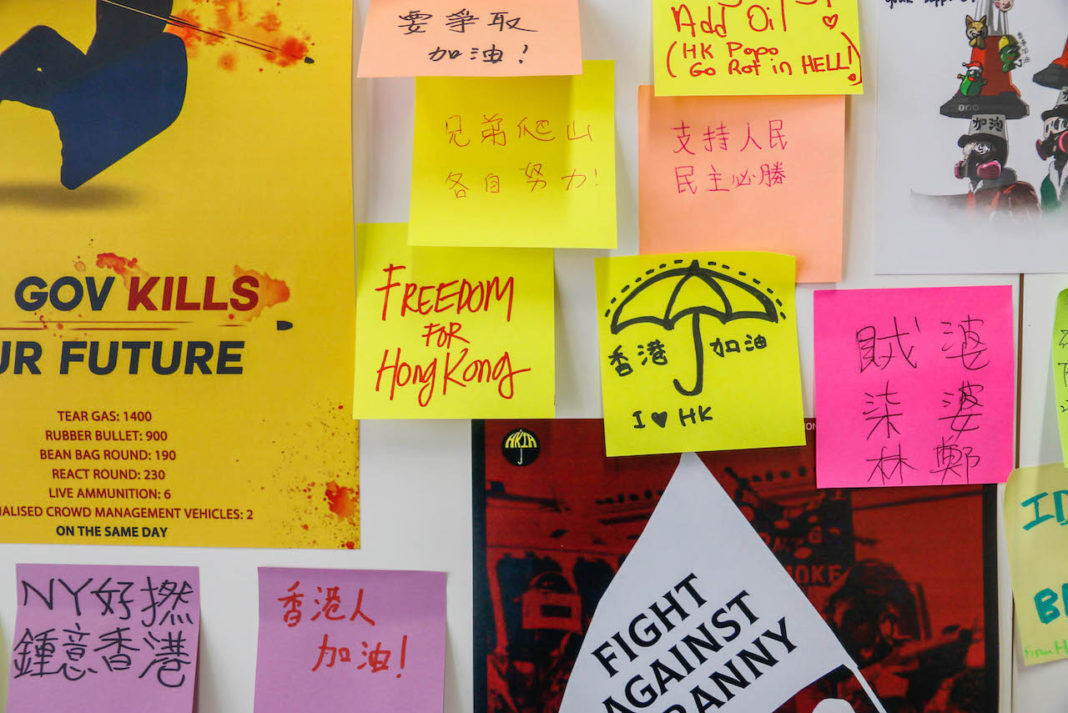 GOV KILLS
UR FUTURE
TEAR GAS: 1400
RUBBER BULLET: 900
BEAN BAG ROUND: 190
REACT ROUND: 230
LIVE AMMUNITION: 6
IALISED CROWD MANAGEMENT VEHICLES: 2
ON THE SAME DAY
要爭取
加油!
Add Oil
(HK Popo
Go Rot in HELL!)
兄弟爬山
各自努力!
支持人民
民主必勝
加油
FREEDOM
FOR
Hong Kong
香港 加油
I ♥ HK
賊婆
柒婆
林鄭
NY好撚
鍾意香港
香港人
加油!
FIGHT
AGAINST
RANNY